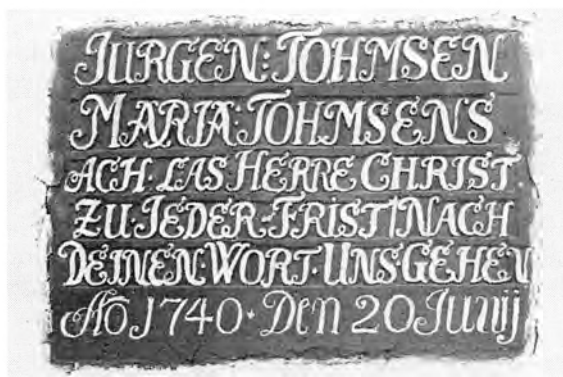 JURGEN: TOHMSEN
MARIA·TOHMSENS
ACH·LAS HERRE CHRIST.
ZU·JEDER·FRIST NACH
DEINEN·WORT·UNS GEHEN
Ao 1740· Den 20 Junij